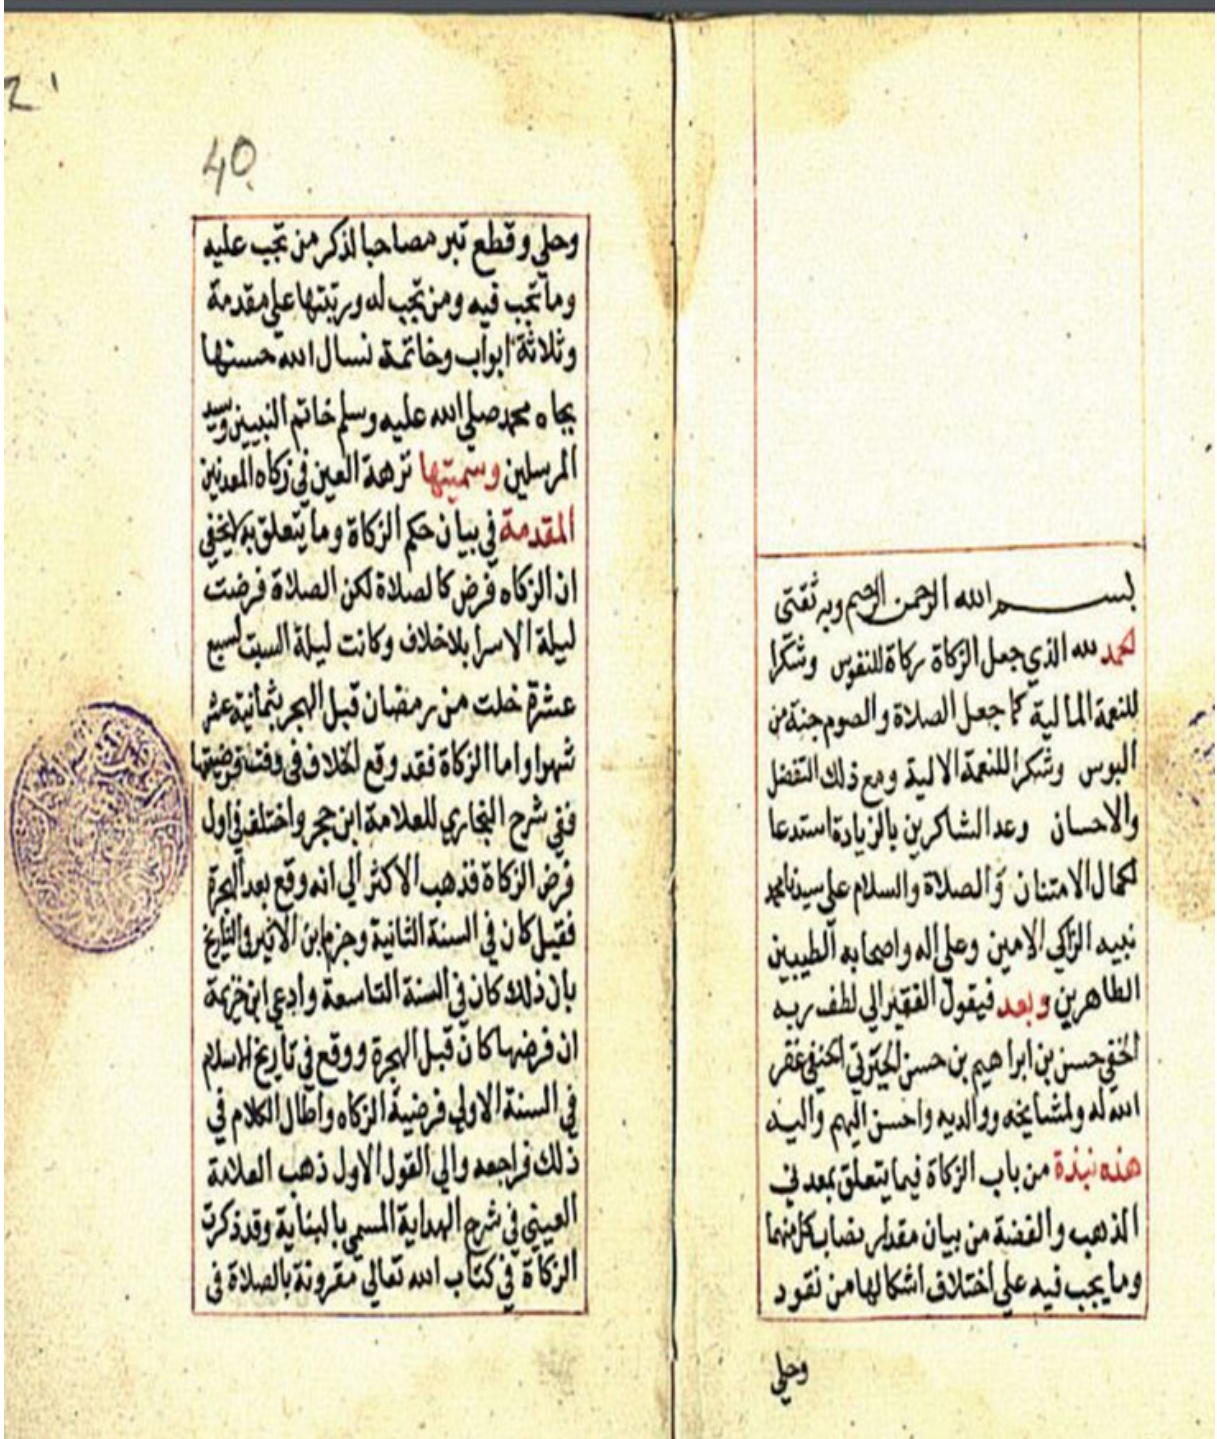 بسم الله الرحمن الرحيم وبه ثقتي
لحمد لله الذي جعل الزكاة زكاة للنفوس وشكرا
للنعمة المالية كما جعل الصلاة والصوم جنة من
البوس وشكرا للنعمة الالية ومع ذلك التفضل
والاحسان وعد الشاكرين بالزيادة استدعا
لكمال الامتنان والصلاة والسلام على سيدنا محمد
نبيه الزاكي الامين وعلى اله واصحابه الطيبين
الطاهرين وبعد فيقول الفقير الي لطف ربه
الخفي حسن بن ابراهيم بن حسن الجبرتي الحنفي غفر
الله له ولمشايخه ووالديه واحسن اليهم واليه
هذه نبذة من باب الزكاة فيما يتعلق بمعدني
الذهب والفضة من بيان مقدار نصاب كل منهما
وما يجب فيه علي اختلاف اشكالها من نقود
وحلي
40
وحلي وقطع تبر مصاحبا لذكر من تجب عليه
وما تجب فيه ومن تجب له ورتبتها علي مقدمة
وثلاثة ابواب وخاتمة نسال الله حسنها
بجاه محمد صلي الله عليه وسلم خاتم النبيين وسيد
المرسلين وسميتها نزهة العين في زكاه المعدنين
المقدمة في بيان حكم الزكاة وما يتعلق به لا يخفي
ان الزكاه فرض كالصلاة لكن الصلاة فرضت
ليلة الاسرا بلاخلاف وكانت ليلة السبت لسبع
عشرة خلت من رمضان قبل الهجر بثمانية عشر
شهرا واما الزكاة فقد وقع الخلاف في وقت فرضيتها
ففي شرح البخاري للعلامة ابن حجر واختلف في اول
فرض الزكاة فذهب الاكثر الي انه وقع بعد الهجرة
فقيل كان في السنة الثانية وجزم ابن الاثير في التاريخ
بان ذلك كان في السنة التاسعة وادعي ابن خزيمة
ان فرضها كان قبل الهجرة ووقع في تاريخ الاسلام
في السنة الاولي فرضية الزكاه واطال الكلام في
ذلك فراجعه والي القول الاول ذهب العلامة
العيني في شرح الهداية المسمي بالبناية وقد ذكرت
الزكاة في كتاب الله تعالي مقرونة بالصلاة في